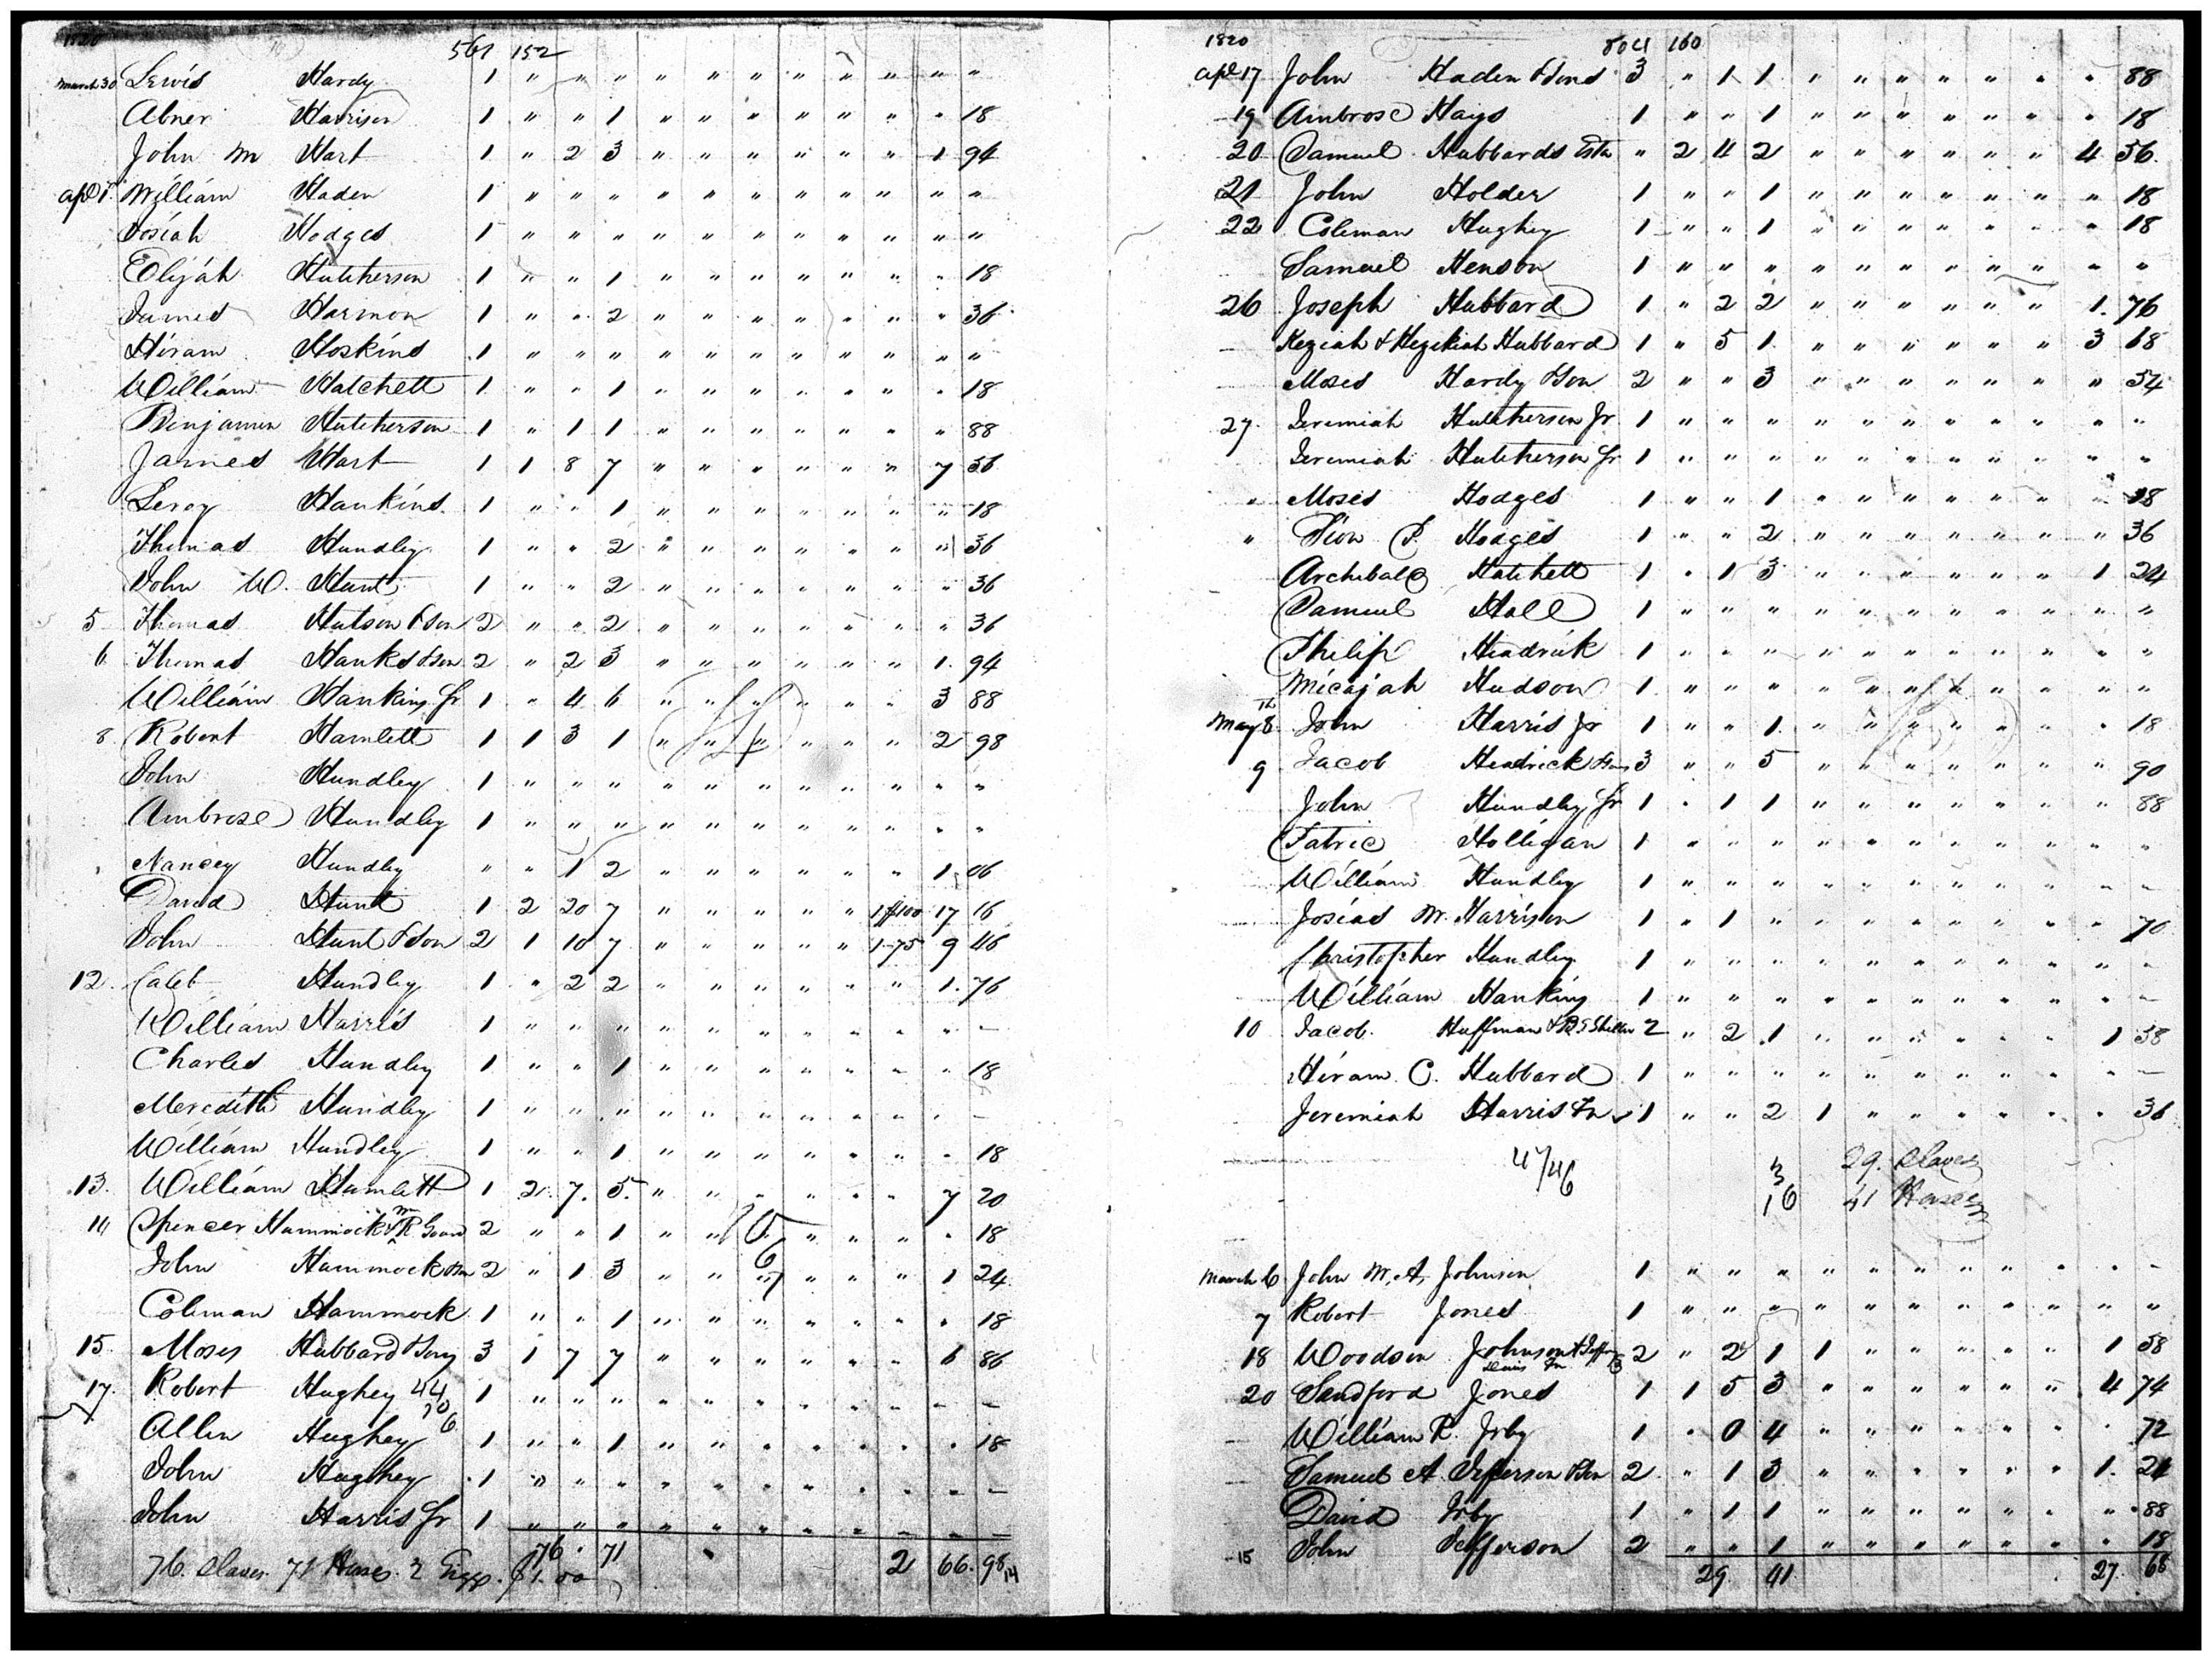 1820 561 152
March 30 Lewis Hardy 1 " " " " " " " " " " "
Abner Harrison 1 " " 1 " " " " " " " 18
John M Hart 1 " 2 3 " " " " " " 1 94
Apl 1 William Haden 1 " " " " " " " " " " "
Josiah Hodges 1 " " " " " " " " " " "
Elijah Hutcherson 1 " " 1 " " " " " " " 18
James Harmon 1 " " 2 " " " " " " " 36
Hiram Hoskins 1 " " " " " " " " " " "
William Hatchett 1 " " 1 " " " " " " " 18
Benjamin Hutcherson 1 " 1 1 " " " " " " " 88
James Hart 1 1 8 7 " " " " " " 7 36
Leroy Hankins 1 " " 1 " " " " " " " 18
Thomas Hundley 1 " " 2 " " " " " " " 36
John W. Hunt 1 " " 2 " " " " " " " 36
5 Thomas Hutson & Son 2 " " 2 " " " " " " " 36
6 Thomas Hanks & Son 2 " 2 3 " " " " " " 1. 94
William Hankins Sr 1 " 4 6 " " " " " " 3 88
8 Robert Hamlett 1 1 3 1 " " " " " " 2 98
John Hundley 1 " " " " " " " " " " "
Ambrose Hundley 1 " " " " " " " " " " "
Nancy Hundley " " 1 2 " " " " " " 1 06
David Hunt 1 2 20 7 " " " " " 1 $100 17 16
John Hunt & Son 2 1 10 7 " " " " " 1-75 9 46
12. Caleb Hundley 1 " 2 2 " " " " " " 1. 76
William Harris 1 " " " " " " " " " " —
Charles Hundley 1 " " 1 " " " " " " " 18
Meredith Hundley 1 " " " " " " " " " " —
William Hundley 1 " " 1 " " " " " " " 18
13. William Hamlett 1 2 7. 5. " " " " " " 7 20
14 Spencer Hammock & Wm R 2 " " 1 " " " " " " " 18
John Hammock & Son 2 " 1 3 " " " " " " 1 24
Coleman Hammock 1 " " 1 " " " " " " " 18
15. Moses Hubbard & Sons 3 1 7 7 " " " " " " 6 86
17. Robert Hughey 1 " " " " " " " " " — —
Allen Hughey 1 " " 1 " " " " " " " 18
John Hughey 1 " " " " " " " " " — —
John Harris Sr 1 " " " " " " " " — — —
76 . 71
76. Slaves. 71 Horses. 2 Giggs. $1.00 2 66. 98
1820 160
Apl 17 John Haden & Sons 3 " 1 1 " " " " " " " 88
19 Ambrose Hays 1 " " 1 " " " " " " " 18
20 Samuel Hubbards Este " 2 4 2 " " " " " " 4 56.
21 John Holder 1 " " 1 " " " " " " " 18
22 Coleman Hughey 1 " " 1 " " " " " " " 18
Samuel Henson 1 " " " " " " " " " " "
26 Joseph Hubbard 1 " 2 2 " " " " " " 1. 76
Keziah & Hezekiah Hubbard 1 " 5 1 " " " " " " 3 68
Moses Hardy & Son 2 " " 3 " " " " " " " 54
27. Jeremiah Hutcherson Jr 1 " " " " " " " " " " "
Jeremiah Hutcherson Sr 1 " " " " " " " " " " "
" Moses Hodges 1 " " 1 " " " " " " " 18
" Hodges 1 " " 2 " " " " " " " 36
Archibald Hatchett 1 " 1 3 " " " " " " 1 24
Samuel Hall 1 " " " " " " " " " " "
Philip Headrick 1 " " " " " " " " " " "
Micajah Hudson 1 " " " " " " " " " " "
May 8th John Harris Jr 1 " " 1 " " " " " " " 18
9 Jacob Headrick & Sons 3 " " 5 " " " " " " " 90
John Hundley Sr 1 " 1 1 " " " " " " " 88
Patric Holligan 1 " " " " " " " " " " "
William Hundley 1 " " " " " " " " " " —
Josias M. Harrison 1 " 1 " " " " " " " " 70
Christopher Hundley 1 " " " " " " " " " " —
William Hankins 1 " " " " " " " " " " —
10 Jacob Huffman 2 " 2 1 " " " " " " 1 58
Hiram C. Hubbard 1 " " " " " " " " " " —
Jeremiah Harris 1 " " 2 1 " " " " " " 36
29. Slaves
16 41 Horses
March 6 John M. A. Johnson 1 " " " " " " " " " " —
7 Robert Jones 1 " " " " " " " " " " "
18 Woodson Johnson 2 " 2 1 1 " " " " " 1 58
20 Sandford Jones 1 1 5 3 " " " " " " 4 74
William R. Irby 1 " 0 4 " " " " " " " 72
Samuel A. Jefferson & Son 2 " 1 3 " " " " " " 1. 24
David Irby 1 " 1 1 " " " " " " " 88
15 John Jefferson 2 " " 1 " " " " " " " 18
29 41 27. 68